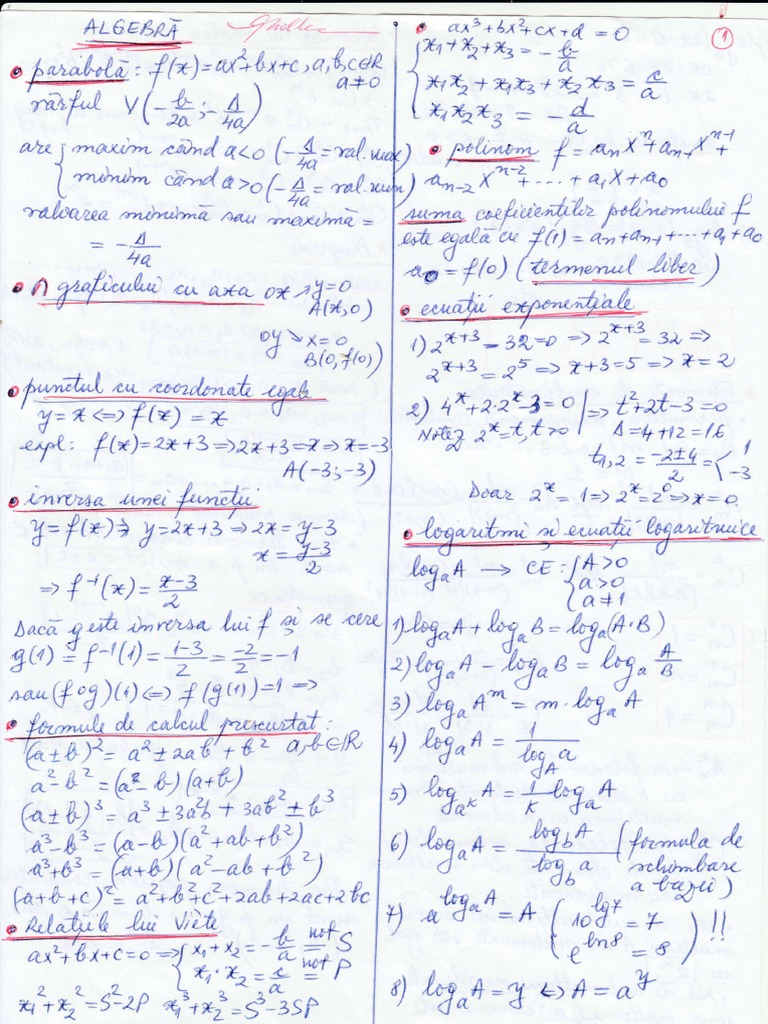 ALGEBRĂ
• parabolă: f(x)=ax²+bx+c, a,b,c∈R
a≠0
vârful V(-b/2a ; -Δ/4a)
are { maxim când a<0 (-Δ/4a = val. max)
minim când a>0 (-Δ/4a = val. min)
valoarea minimă sau maximă =
= -Δ/4a
• ∩ graficului cu axa ox ↗ y=0
A(x,0)
oy ↘ x=0
B(0, f(0))
• punctul cu coordonate egale
y=x <=> f(x)=x
expl: f(x)=2x+3 => 2x+3=x => x=-3
A(-3;-3)
• inversa unei funcții
y=f(x) => y=2x+3 => 2x=y-3
x = (y-3)/2
=> f⁻¹(x) = (x-3)/2
Dacă g este inversa lui f și se cere
g(1) = f⁻¹(1) = (1-3)/2 = -2/2 = -1
sau (f∘g)(1) <=> f(g(1))=1 =>
• formule de calcul prescurtat:
(a±b)² = a² ± 2ab + b² a,b∈R
a²-b² = (a-b)(a+b)
(a±b)³ = a³ ± 3a²b + 3ab² ± b³
a³-b³ = (a-b)(a²+ab+b²)
a³+b³ = (a+b)(a²-ab+b²)
(a+b+c)² = a²+b²+c²+2ab+2ac+2bc
• Relațiile lui Viète
ax²+bx+c=0 => { x₁+x₂ = -b/a not= S
x₁·x₂ = c/a not= P
x₁²+x₂² = S²-2P x₁³+x₂³ = S³-3SP
①
• ax³+bx²+cx+d = 0
{ x₁+x₂+x₃ = -b/a
x₁x₂+x₁x₃+x₂x₃ = c/a
x₁x₂x₃ = -d/a
• polinom f = aₙXⁿ+aₙ₋₁Xⁿ⁻¹+
aₙ₋₂Xⁿ⁻²+...+a₁X+a₀
suma coeficienților polinomului f
este egală cu f(1) = aₙ+aₙ₋₁+...+a₁+a₀
a₀ = f(0) (termenul liber)
• ecuații exponențiale
1) 2ˣ⁺³ - 32 = 0 => 2ˣ⁺³ = 32 =>
2ˣ⁺³ = 2⁵ => x+3=5 => x=2
2) 4ˣ+2·2ˣ-3=0 | => t²+2t-3=0
Notez 2ˣ=t, t>0 | Δ=4+12=16
t₁,₂ = (-2±4)/2 = < 1
-3
Doar 2ˣ=1 => 2ˣ=2⁰ => x=0
• logaritmi și ecuații logaritmice
logₐA → CE: { A>0
a>0
a≠1
1) logₐA + logₐB = logₐ(A·B)
2) logₐA - logₐB = logₐ A/B
3) logₐAᵐ = m·logₐA
4) logₐA = 1/log_A a
5) log_aᵏ A = 1/k logₐA
6) logₐA = log_b A / log_b a (formula de
schimbare
a bazei)
7) a^(logₐA) = A ( 10^(lg7) = 7 ) !!
( e^(ln8) = 8 )
8) logₐA = y <=> A = aʸ